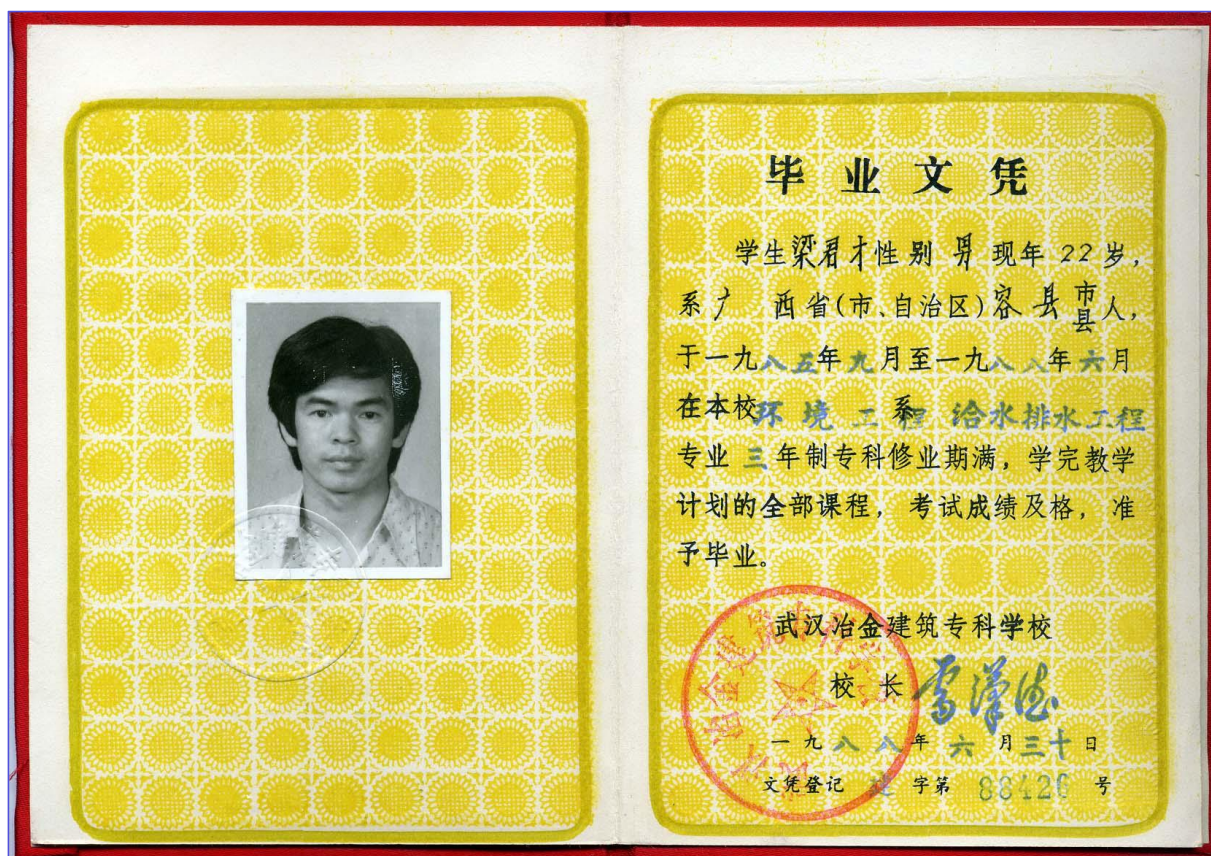 毕业文凭
学生梁君才性别 男 现年 22 岁，
系广 西省(市、自治区)容 县 市县人，
于一九八五年九月至一九八八年六月
在本校环境工程系 给水排水工程
专业 三 年制专科修业期满，学完教学
计划的全部课程，考试成绩及格，准
予毕业。
武汉冶金建筑专科学校
校 长
一九八八年 六 月三十日
文凭登记 建 字第 88426 号
武汉冶金建筑专科学校